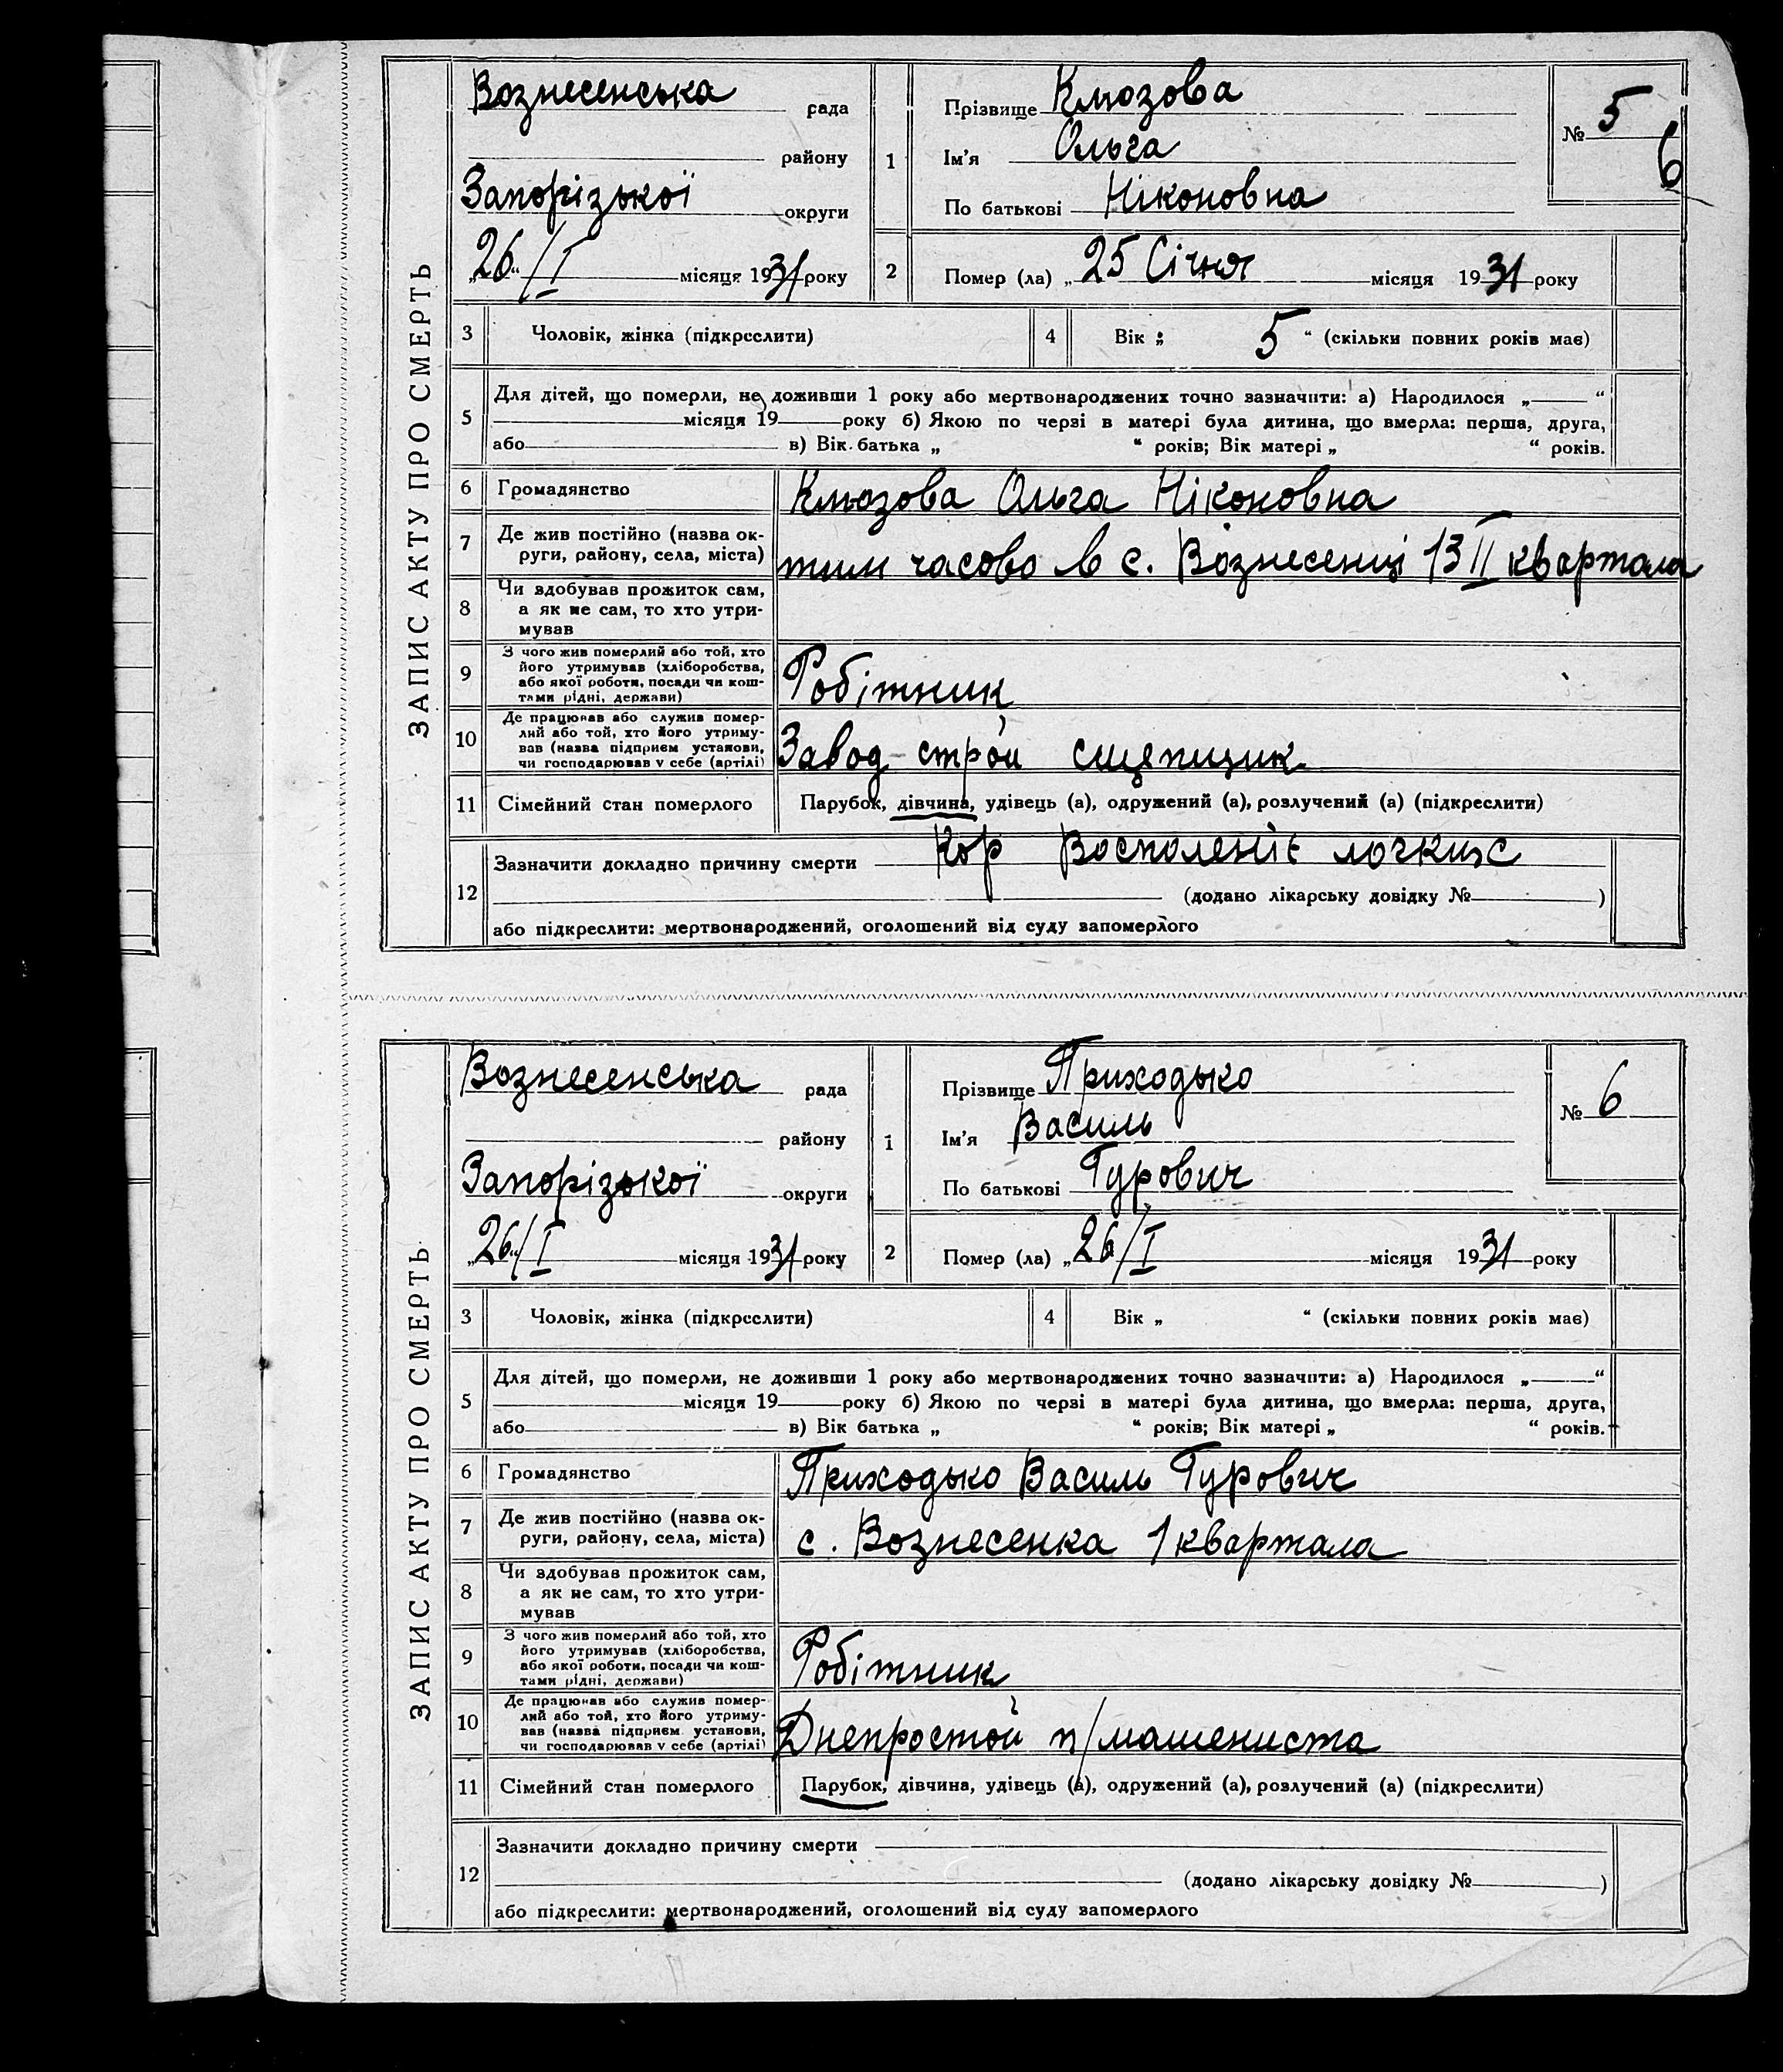 ЗАПИС АКТУ ПРО СМЕРТЬ
Вознесенська рада
району
Запорізької округи
„26“/I місяця 1931 року
1
Прізвище Клюзова
Ім'я Ольга
По батькові Ніконовна
№ 5
6
2
Помер (ла) „25 Січня місяця 1931 року
3 Чоловік, жінка (підкреслити)
4 Вік „ 5 “ (скільки повних років має)
5 Для дітей, що померли, не доживши 1 року або мертвонароджених точно зазначити: а) Народилося „ “
місяця 19 року б) Якою по черзі в матері була дитина, що вмерла: перша, друга,
або в) Вік батька „ “ років; Вік матері „ “ років.
6 Громадянство Клюзова Ольга Ніконовна
7 Де жив постійно (назва ок-
руги, району, села, міста) тим часово в с. Вознесенці 13 II квартала
8 Чи здобував прожиток сам,
а як не сам, то хто утри-
мував
9 З чого жив померлий або той, хто
його утримував (хліборобства,
або якої роботи, посади чи кош-
тами рідні, держави) Робітник
10 Де працював або служив помер-
лий або той, хто його утриму-
вав (назва підприєм. установи,
чи господарював у себе (артілі) Завод-строй сцепщик
11 Сімейний стан померлого Парубок, дівчина, удівець (а), одружений (а), розлучений (а) (підкреслити)
12 Зазначити докладно причину смерти Кор Восполеніє
(додано лікарську довідку № )
або підкреслити: мертвонароджений, оголошений від суду запомерлого
ЗАПИС АКТУ ПРО СМЕРТЬ
Вознесенська рада
району
Запорізької округи
„26“/I місяця 1931 року
1
Прізвище Приходько
Ім'я Василь
По батькові Гурович
№ 6
2
Помер (ла) „26/I місяця 1931 року
3 Чоловік, жінка (підкреслити)
4 Вік „ “ (скільки повних років має)
5 Для дітей, що померли, не доживши 1 року або мертвонароджених точно зазначити: а) Народилося „ “
місяця 19 року б) Якою по черзі в матері була дитина, що вмерла: перша, друга,
або в) Вік батька „ “ років; Вік матері „ “ років.
6 Громадянство Приходько Василь Гурович
7 Де жив постійно (назва ок-
руги, району, села, міста) с. Вознесенка 1 квартала
8 Чи здобував прожиток сам,
а як не сам, то хто утри-
мував
9 З чого жив померлий або той, хто
його утримував (хліборобства,
або якої роботи, посади чи кош-
тами рідні, держави) Робітник
10 Де працював або служив помер-
лий або той, хто його утриму-
вав (назва підприєм. установи,
чи господарював у себе (артілі) Днепростой п/машениста
11 Сімейний стан померлого Парубок, дівчина, удівець (а), одружений (а), розлучений (а) (підкреслити)
12 Зазначити докладно причину смерти
(додано лікарську довідку № )
або підкреслити: мертвонароджений, оголошений від суду запомерлого